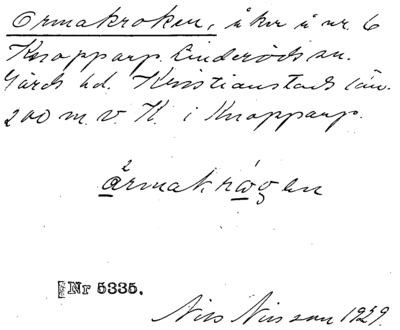 Ormakroken, åker å nr. 6
Knopparp. Linderöds sn.
Gärds hd. Kristianstads län.
200 m. v. K. i Knopparp.
årmakrågen
Nr 5335.
Nils Nilsson 1929.